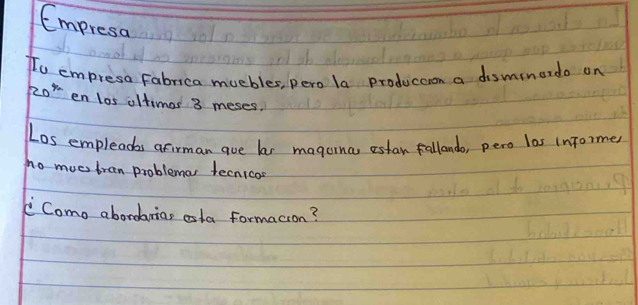 Empresa
Tu empresa fabrica muebles, pero la produccion a disminuido un
20% en los ultimos 3 meses.
Los empleados afirman que las maquinas estan fallando, pero los informes
no muestran problemas tecnicos
¿Como abordarias esta formacion?